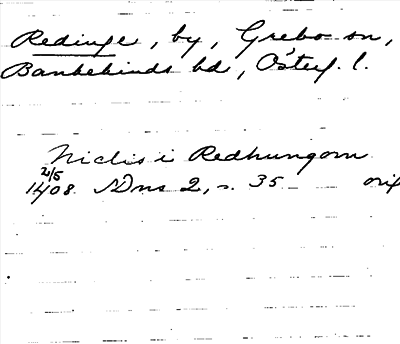 Redinge, by, Grebo sn,
Bankekinds hd, Österg. l.
Niclis i Redhungom
2/5
1408 SDns 2, s. 35 orig